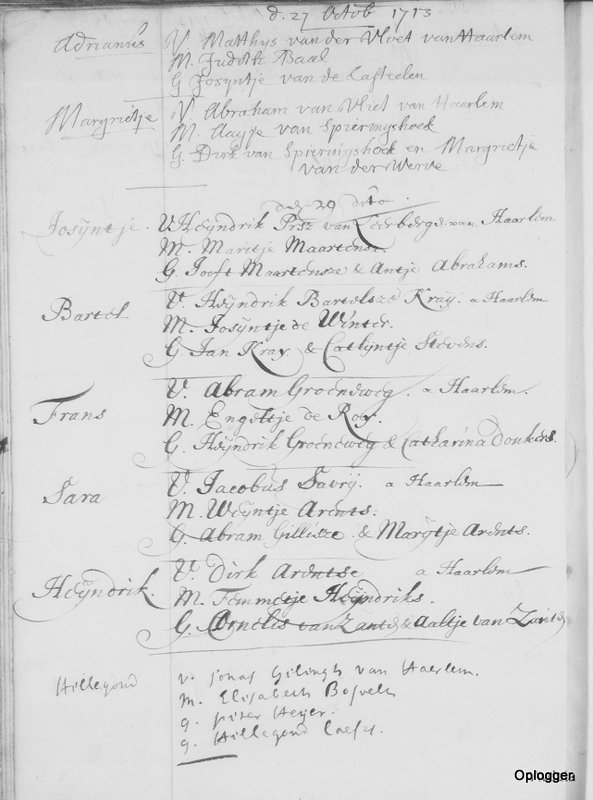 d. 27 Octob 1713
Adrianus V. Matthys van der Vloet van Haarlem
M. Judith Baal
G Josyntje van de Casteelen
Margrietje V. Abraham van Vliet van Haarlem
M. Aagje van Spieringshoek
G. Dirk van Spieringshoek en Margrietje
van der Werve
den 29 dito
Josyntje. V. Heyndrik Prsz van Leerberge van Haarlem
M. Maritje Maartensz
G Jooft Maartensze & Antje Abrahams.
Bartel V. Heyndrik Bartelsze Kray. a Haarlem
M. Josyntje de Winter.
G Jan Kray & Catlyntje Stevens.
Frans V. Abram Groeneweg. a Haarlem.
M. Engeltje de Roy.
G. Heyndrik Groeneweg & Catharina Donkers.
Sara V. Jacobus Savrij. a Haarlem
M. Weyntje Arents.
G. Abram Gillisze. & Marytje Arents.
Heyndrik. V. Dirk Arentse a Haarlem
M. Femmetje Heyndriks.
G. Cornelis van Zanten & Aaltje van Zanten
Hillegond v. Jonas Gelingh van Haerlem.
m. Elisabeth Bosvelt
g. pieter Heyer.
g. Hillegond
Oploggen